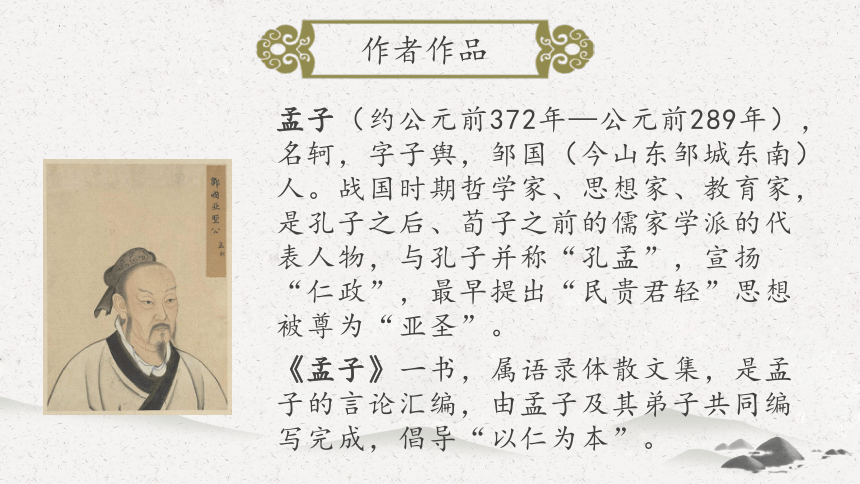 作者作品
孟子（约公元前372年—公元前289年），
名轲，字子舆，邹国（今山东邹城东南）
人。战国时期哲学家、思想家、教育家，
是孔子之后、荀子之前的儒家学派的代
表人物，与孔子并称“孔孟”，宣扬
“仁政”，最早提出“民贵君轻”思想
被尊为“亚圣”。
《孟子》一书，属语录体散文集，是孟
子的言论汇编，由孟子及其弟子共同编
写完成，倡导“以仁为本”。
鄒國亞聖公